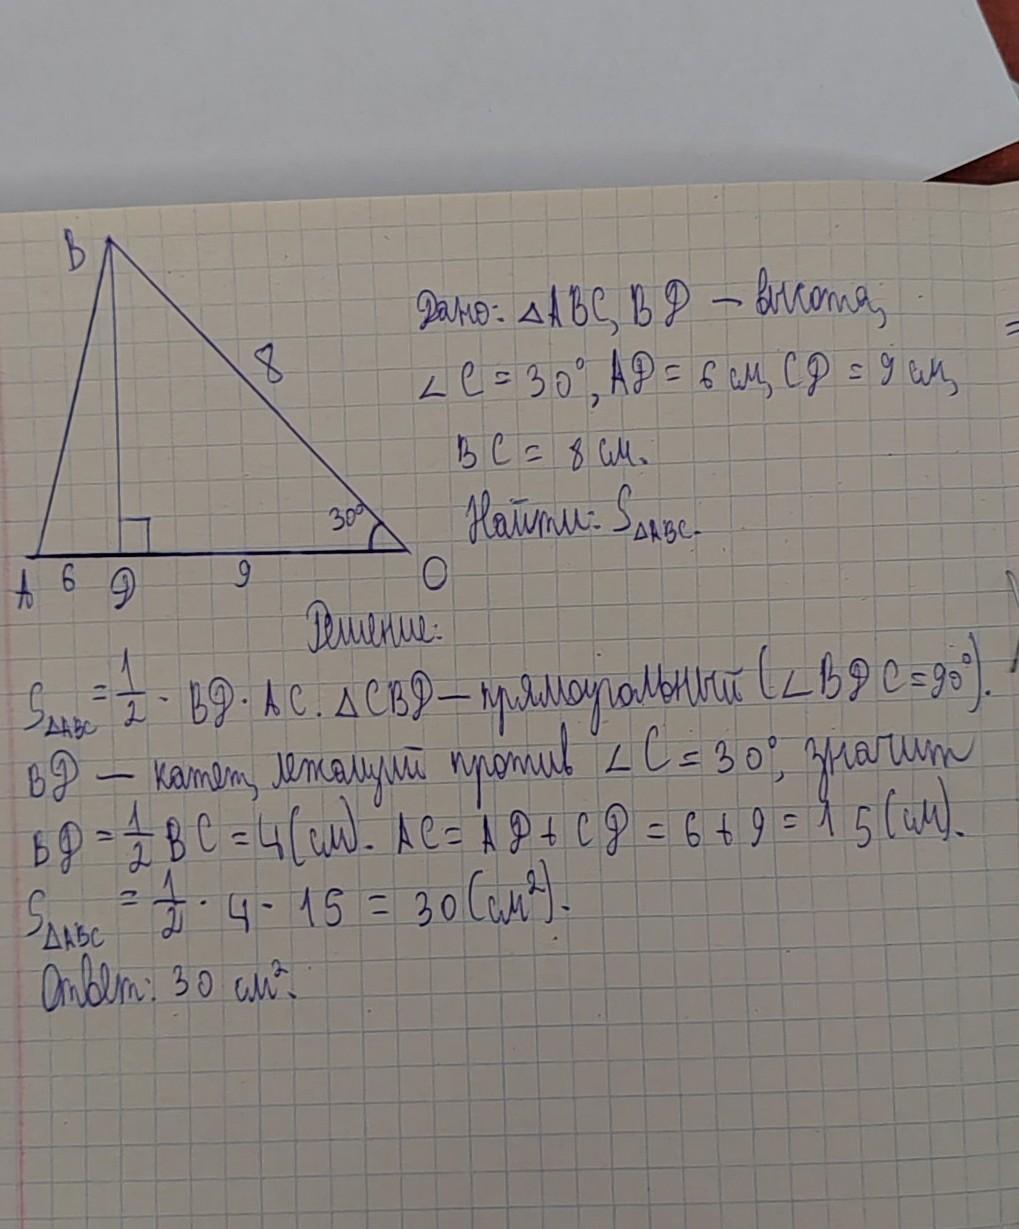 B
8
30°
A 6 D 9 C
Дано: △ABC, BD — высота,
∠C = 30°, AD = 6 см, CD = 9 см,
BC = 8 см.
Найти: S△ABC.
Решение:
S△ABC = 1/2 · BD · AC. △CBD — прямоугольный (∠BDC = 90°).
BD — катет, лежащий против ∠C = 30°, значит
BD = 1/2 BC = 4 (см). AC = AD + CD = 6 + 9 = 15 (см).
S△ABC = 1/2 · 4 · 15 = 30 (см²).
Ответ: 30 см².